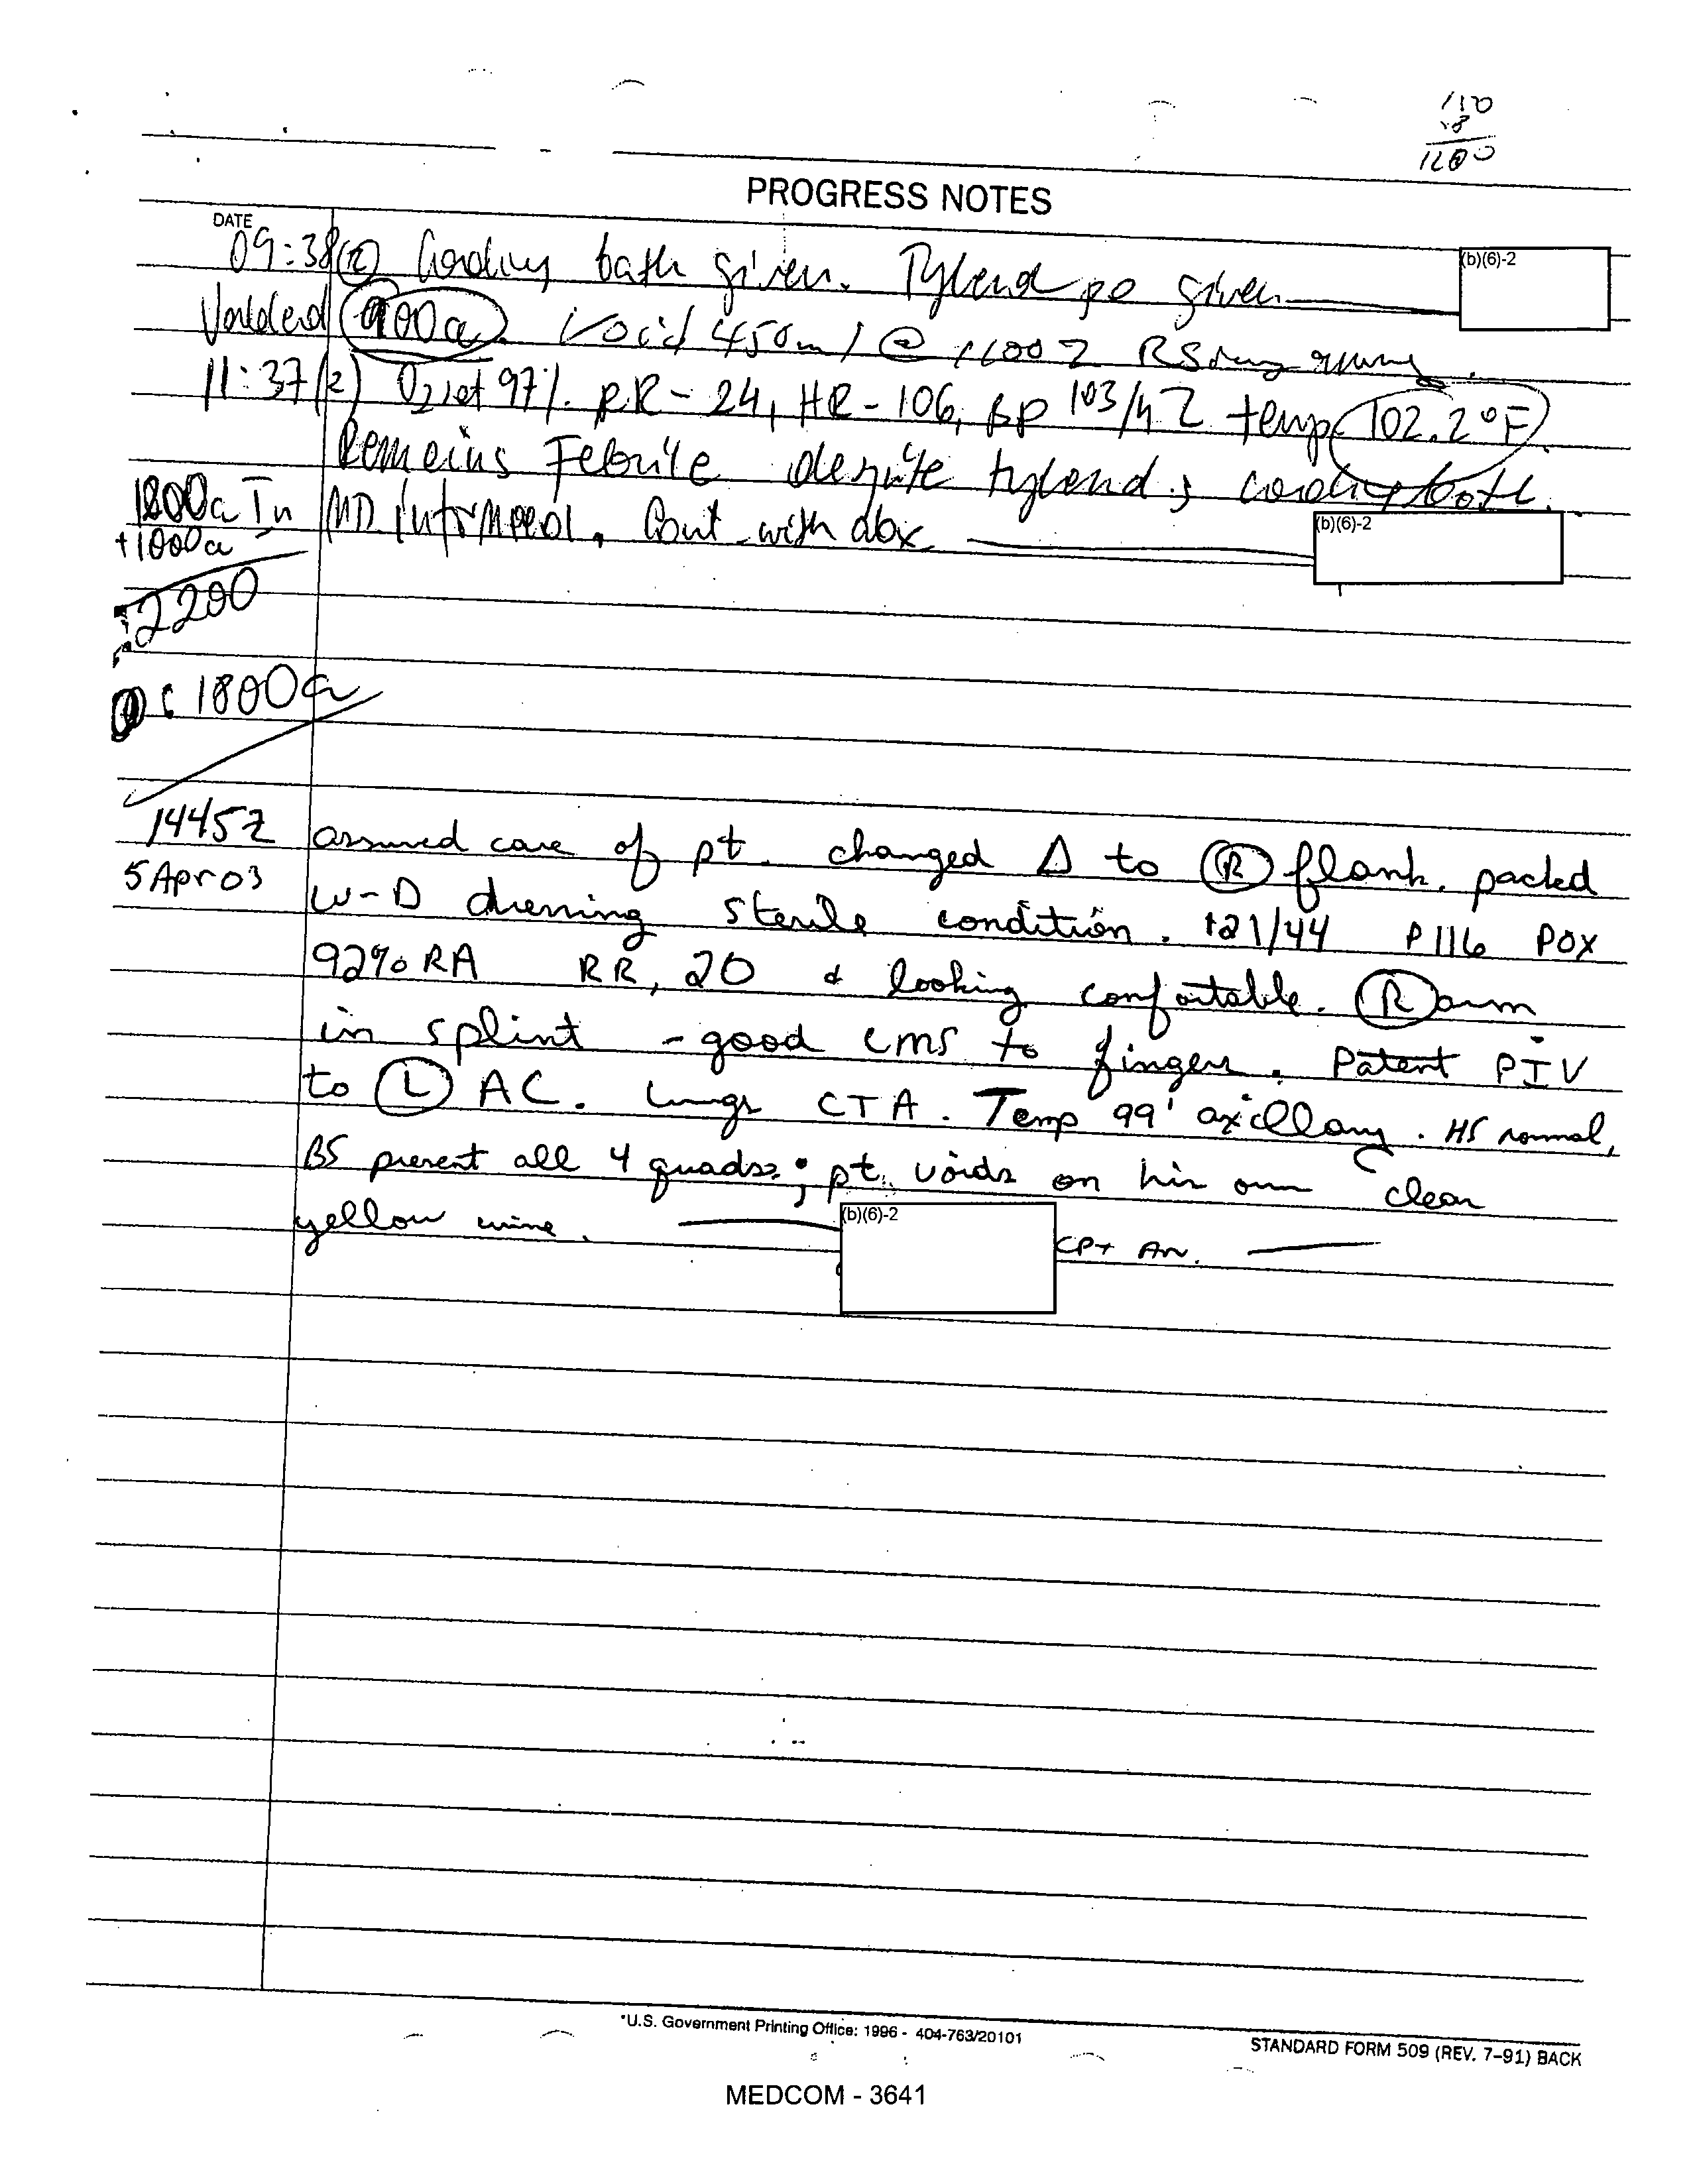 150
x8
1200
PROGRESS NOTES
DATE
09:38(z) Cooling bath given. Tylenol po given
(b)(6)-2
Voided 900cc. Void 450ml @ 1100Z
11:37(z) O2 sat 97%. RR - 24, HR - 106, BP 103/42 temp 102.2°F.
Remains Febrile despite tylenol & cooling bath.
1800cc In MD informed. Cont with abx
+1000cc
(b)(6)-2
2200
1800cc
1445Z assumed care of pt. changed Δ to (R) flank. packed
5 Apr 03 W-D dressing sterile condition. 121/44 P 116 POX
92% RA RR, 20 & looking comfortable. (R) arm
in splint - good CMS to fingers. Patent PIV
to (L) AC. Lungs CTA. Temp 99' axillary. HS normal,
BS present all 4 quads; pt. voids on his own clear
yellow urine.
(b)(6)-2
CPT AN.
*U.S. Government Printing Office: 1996 - 404-763/20101
STANDARD FORM 509 (REV. 7-91) BACK
MEDCOM - 3641